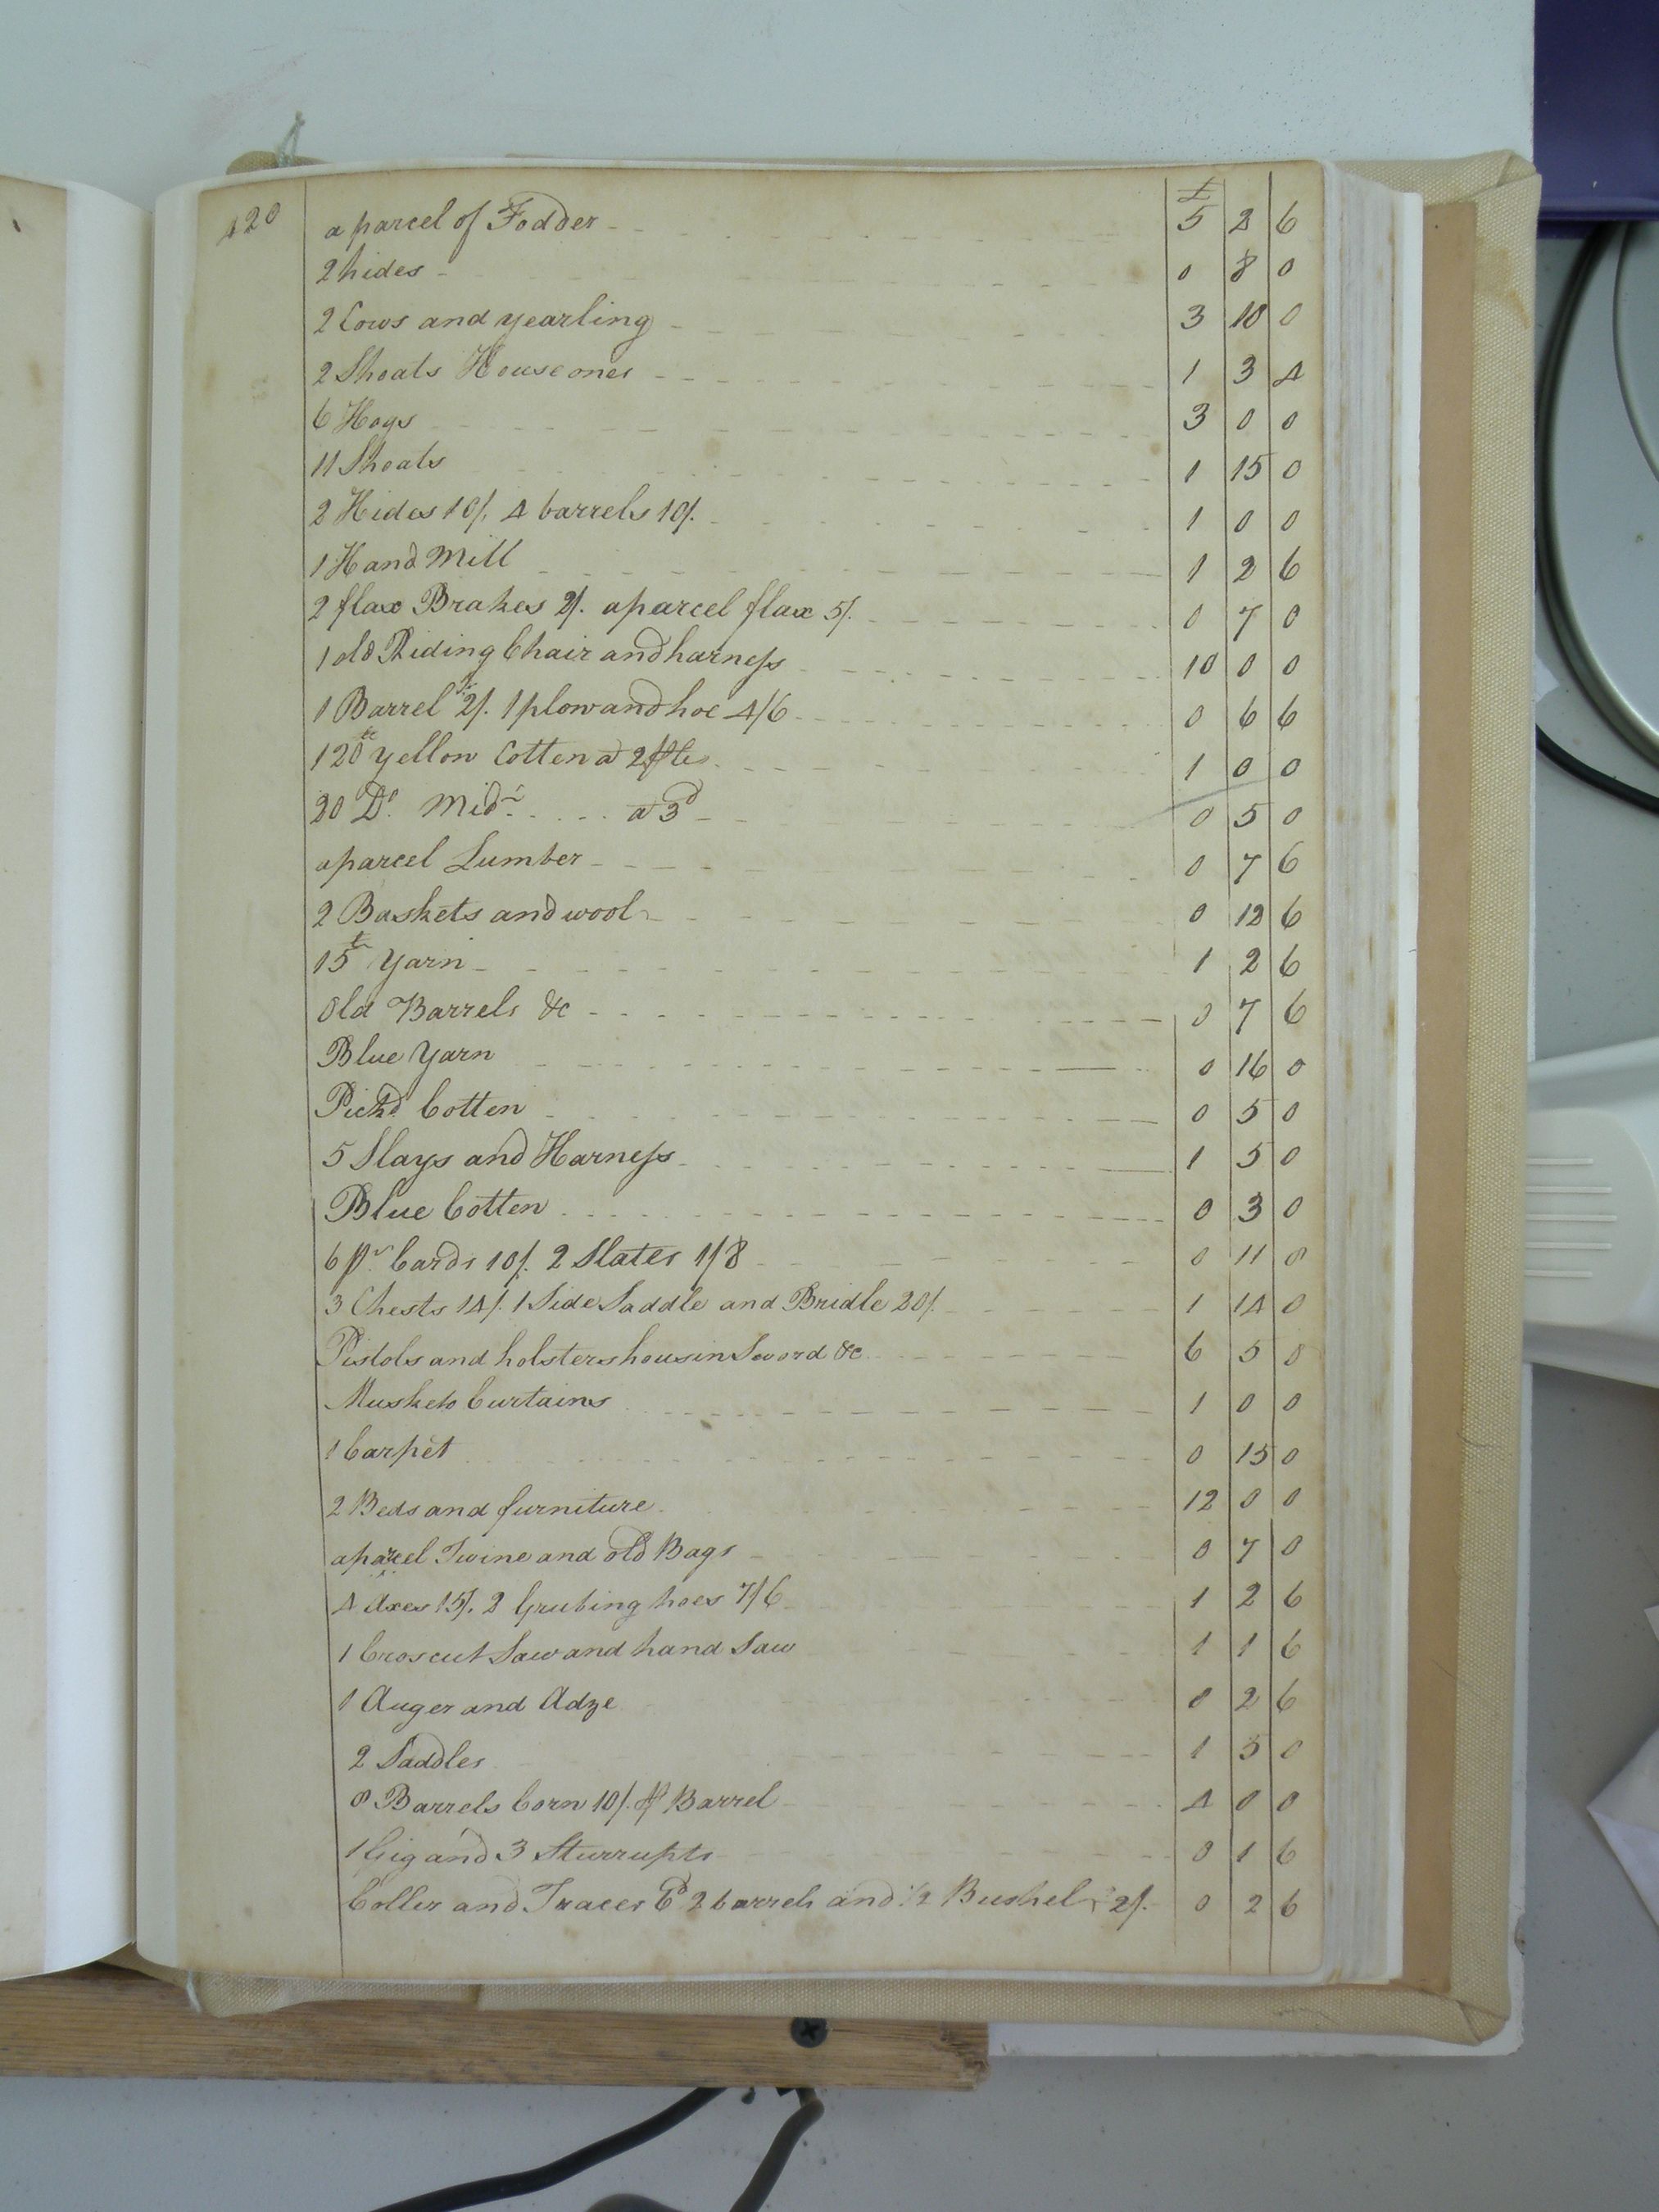 420
£
a parcel of Fodder 5 2 6
2 hides 0 8 0
2 Cows and yearling 3 10 0
2 Shoats House ones 1 3 4
6 Hogs 3 0 0
11 Shoats 1 15 0
2 Hides 10/. 4 barrels 10/. 1 0 0
1 Hand Mill 1 2 6
2 flax Brakes 2/. a parcel flax 5/. 0 7 0
1 old Riding Chair and harness 10 0 0
1 Barrel 2/. 1 plow and hoe 4/6 0 6 6
120 yellow Cotten a 2 1 0 0
20 Do. Midr. a 3d 0 5 0
a parcel Lumber 0 7 6
2 Baskets and wool 0 12 6
15 Yarn 1 2 6
Old Barrels &c 0 7 6
Blue Yarn 0 16 0
Pickd Cotten 0 5 0
5 Slays and Harness 1 5 0
Blue Cotten 0 3 0
6 pr. Cards 10/. 2 Slates 1/8 0 11 8
3 Chests 14/. 1 Side Saddle and Bridle 20/. 1 14 0
Pistols and holsters housin Sword &c 6 5 0
Musketo Curtains 1 0 0
1 Carpet 0 15 0
2 Beds and furniture 12 0 0
a parcel Twine and old Bags 0 7 0
4 Axes 15/. 2 Grubing hoes 7/6 1 2 6
1 Croscut Saw and hand Saw 1 1 6
1 Auger and Adze 0 2 6
2 Saddles 1 5 0
8 Barrels Corn 10/. ⅌ Barrel 4 0 0
1 Gig and 3 Sturrupts 0 1 6
Coller and Traces 6d 2 barrels and 1/2 Bushel 2/. 0 2 6